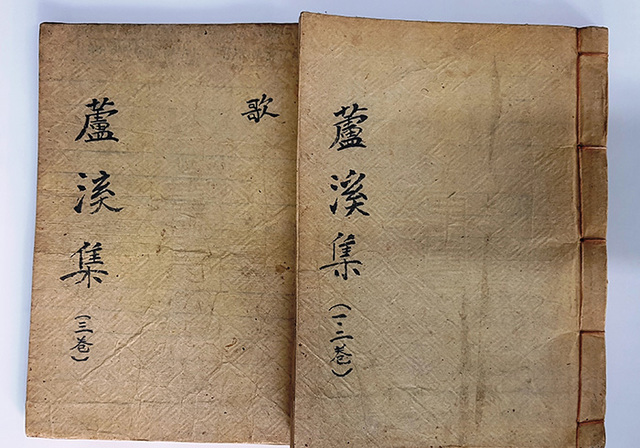 歌
蘆溪集
(三卷)
蘆溪集
(一·二卷)